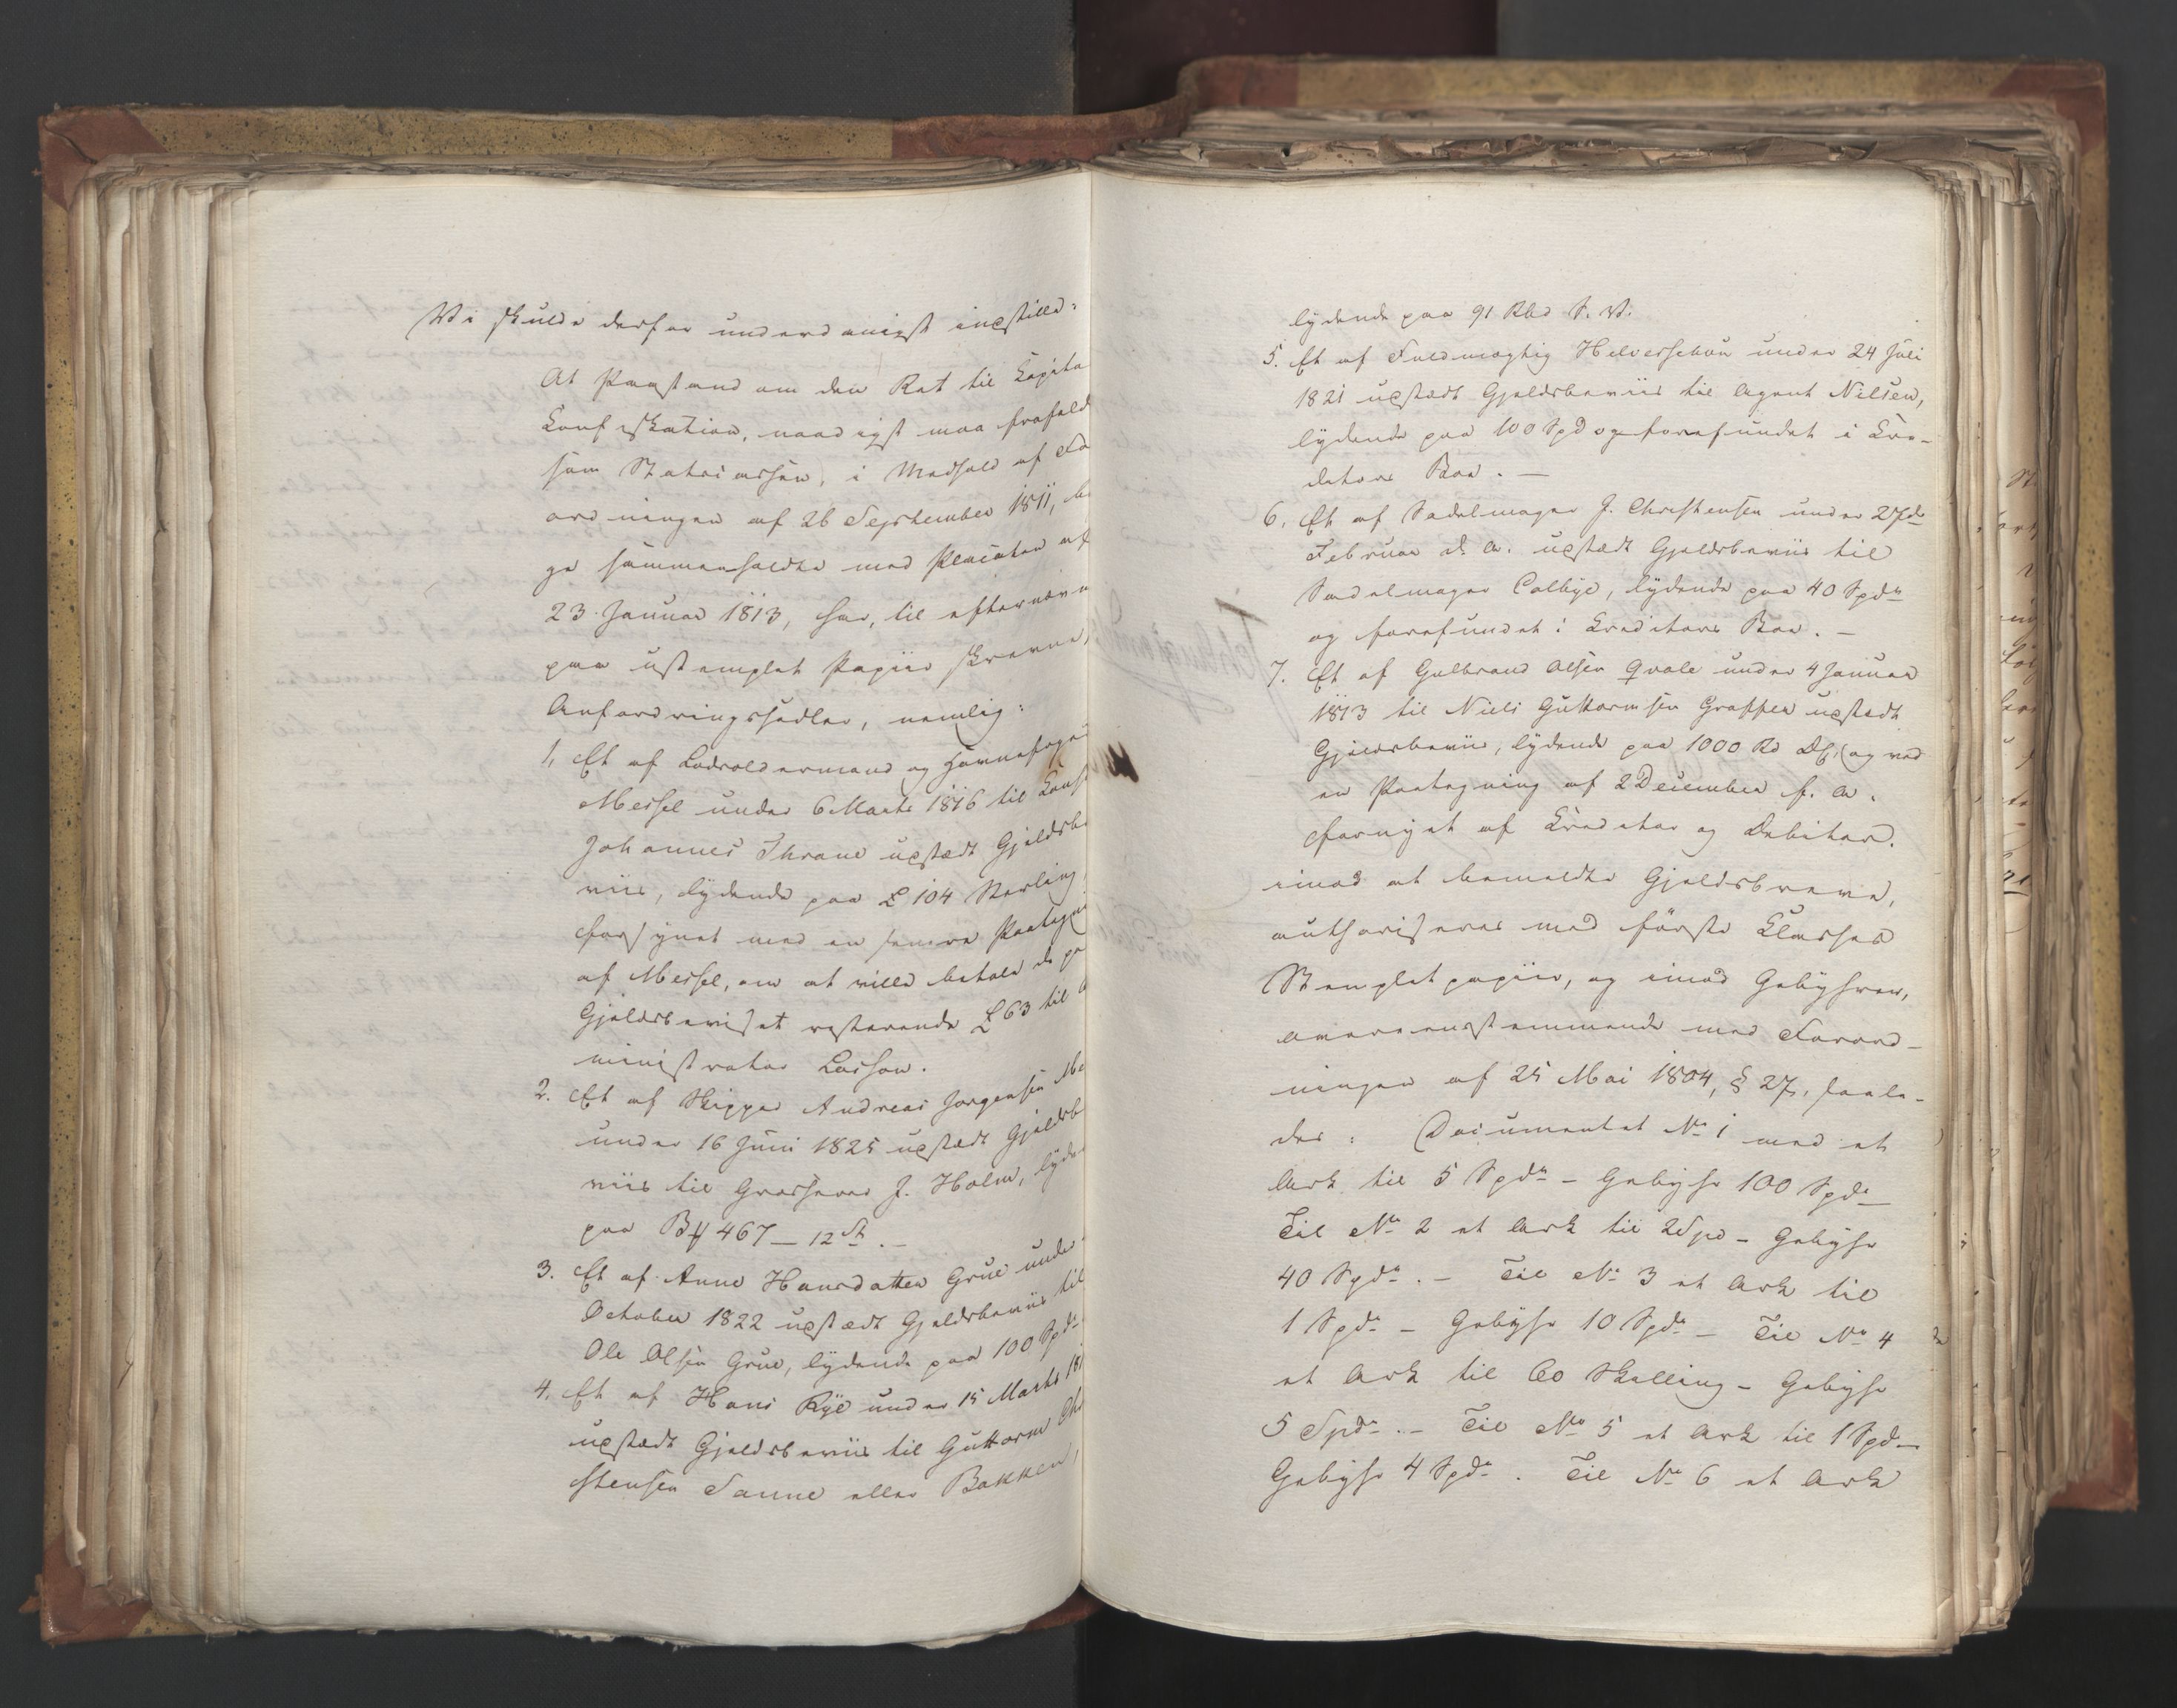 Vi skulde derfor underdanigst indstille:
At Paastand om den Ret til Capita
Confiskation, naadigst maa frafald
som Statscassen, i Medhold af Fo
ordningen af 26 September 1811, be
ge sammenholdte med Placaten af
23 Januar 1813, har, til efternævn
paa ustemplet Papiir skrevne,
Anfordringssedler, nemlig:
1, Et af Lodsoldermand og Havnefoge
Messel under 6 Marts 1816 til Cons
Johannes Thrane udstædt Gjeldsbe
viis, lydende paa £ 104 Sterling,
forsynet med en senere Paategni
af Messel, om at ville betale de pa
Gjeldsbeviset resterende £ 63 til A
ministrator Lasson.
2. Et af Skipper Andreas Jørgensen Me
under 16 Juni 1825 udstædt Gjeldsb
viis til Grosserer J. Holm, lyde
paa B 467 – 12 .–
3. Et af Anne Hansdatter Grue under
October 1822 udstædt Gjeldsbeviis til
Ole Olsen Grue, lydende paa 100 Spd
4. Et af Hans Rye under 15 Marts 181
udstædt Gjeldsbeviis til Guttorm Chr
stensen Sanne eller Bakken,
lydende paa 91 Rbd S. V.
5. Et af Fuldmægtig Helverschou under 24 Juli
1821 udstædt Gjeldsbeviis til Agent Nilsen,
lydende paa 100 Spd og forefundet i Cre-
ditors Boe. –
6. Et af Sadelmager J. Christensen under 27de
Februar d. A. udstædt Gjeldsbeviis til
Sadelmager Colbye, lydende paa 40 Spdr
og forefundet i Creditors Boe. –
7. Et af Gulbrand Olsen Qvale under 4 Januar
1813 til Niels Guttormsen Graffer udstædt
Gjeldsbeviis, lydende paa 1000 Rd D, og ved
en Paategning af 2 December f. A.
fornyet af Creditor og Debitor.
imod at bemeldte Gjeldsbreve,
authoriseres med første Classes
Stemplet papiir, og imod Gebyhrer,
overeensstemmende med Forord-
ningen af 25 Mai 1804, § 27, saale-
des: Documentet No 1 med et
Ark til 5 Spdr – Gebyhr 100 Spdr –
Til No 2 et Ark til 2 Spd – Gebyhr
40 Spdr. – Til No 3 et Ark til
1 Spdr – Gebyhr 10 Spdr – Til No 4
et Ark til 60 Skilling – Gebyhr
5 Spdr. – Til No 5 et Ark til 1 Spdr –
Gebyhr 4 Spdr. Til No 6 et Ark